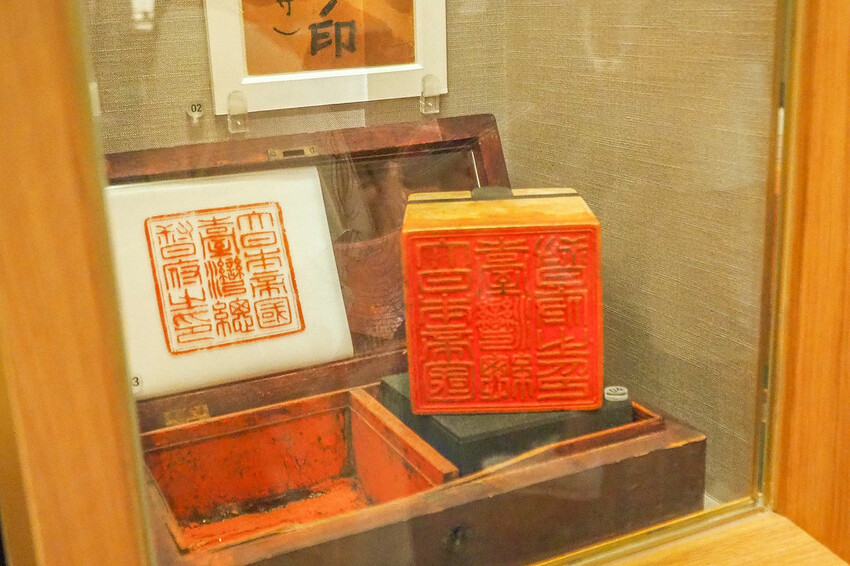 ノ印
02
大日本帝國
臺灣總
督府之印
3
大日本帝國
臺灣總
督府之印